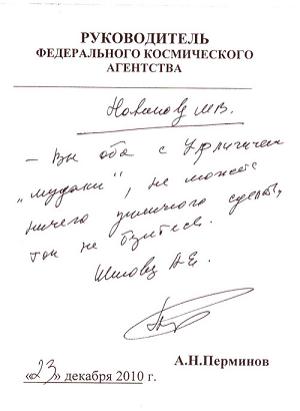 РУКОВОДИТЕЛЬ
ФЕДЕРАЛЬНОГО КОСМИЧЕСКОГО
АГЕНТСТВА
М.В.
– Вы оба с Урличичем
„мудаки", не можете
ничего сделать,
так не беритесь.
Шилову А.Е.
А.Н.Перминов
«23» декабря 2010 г.